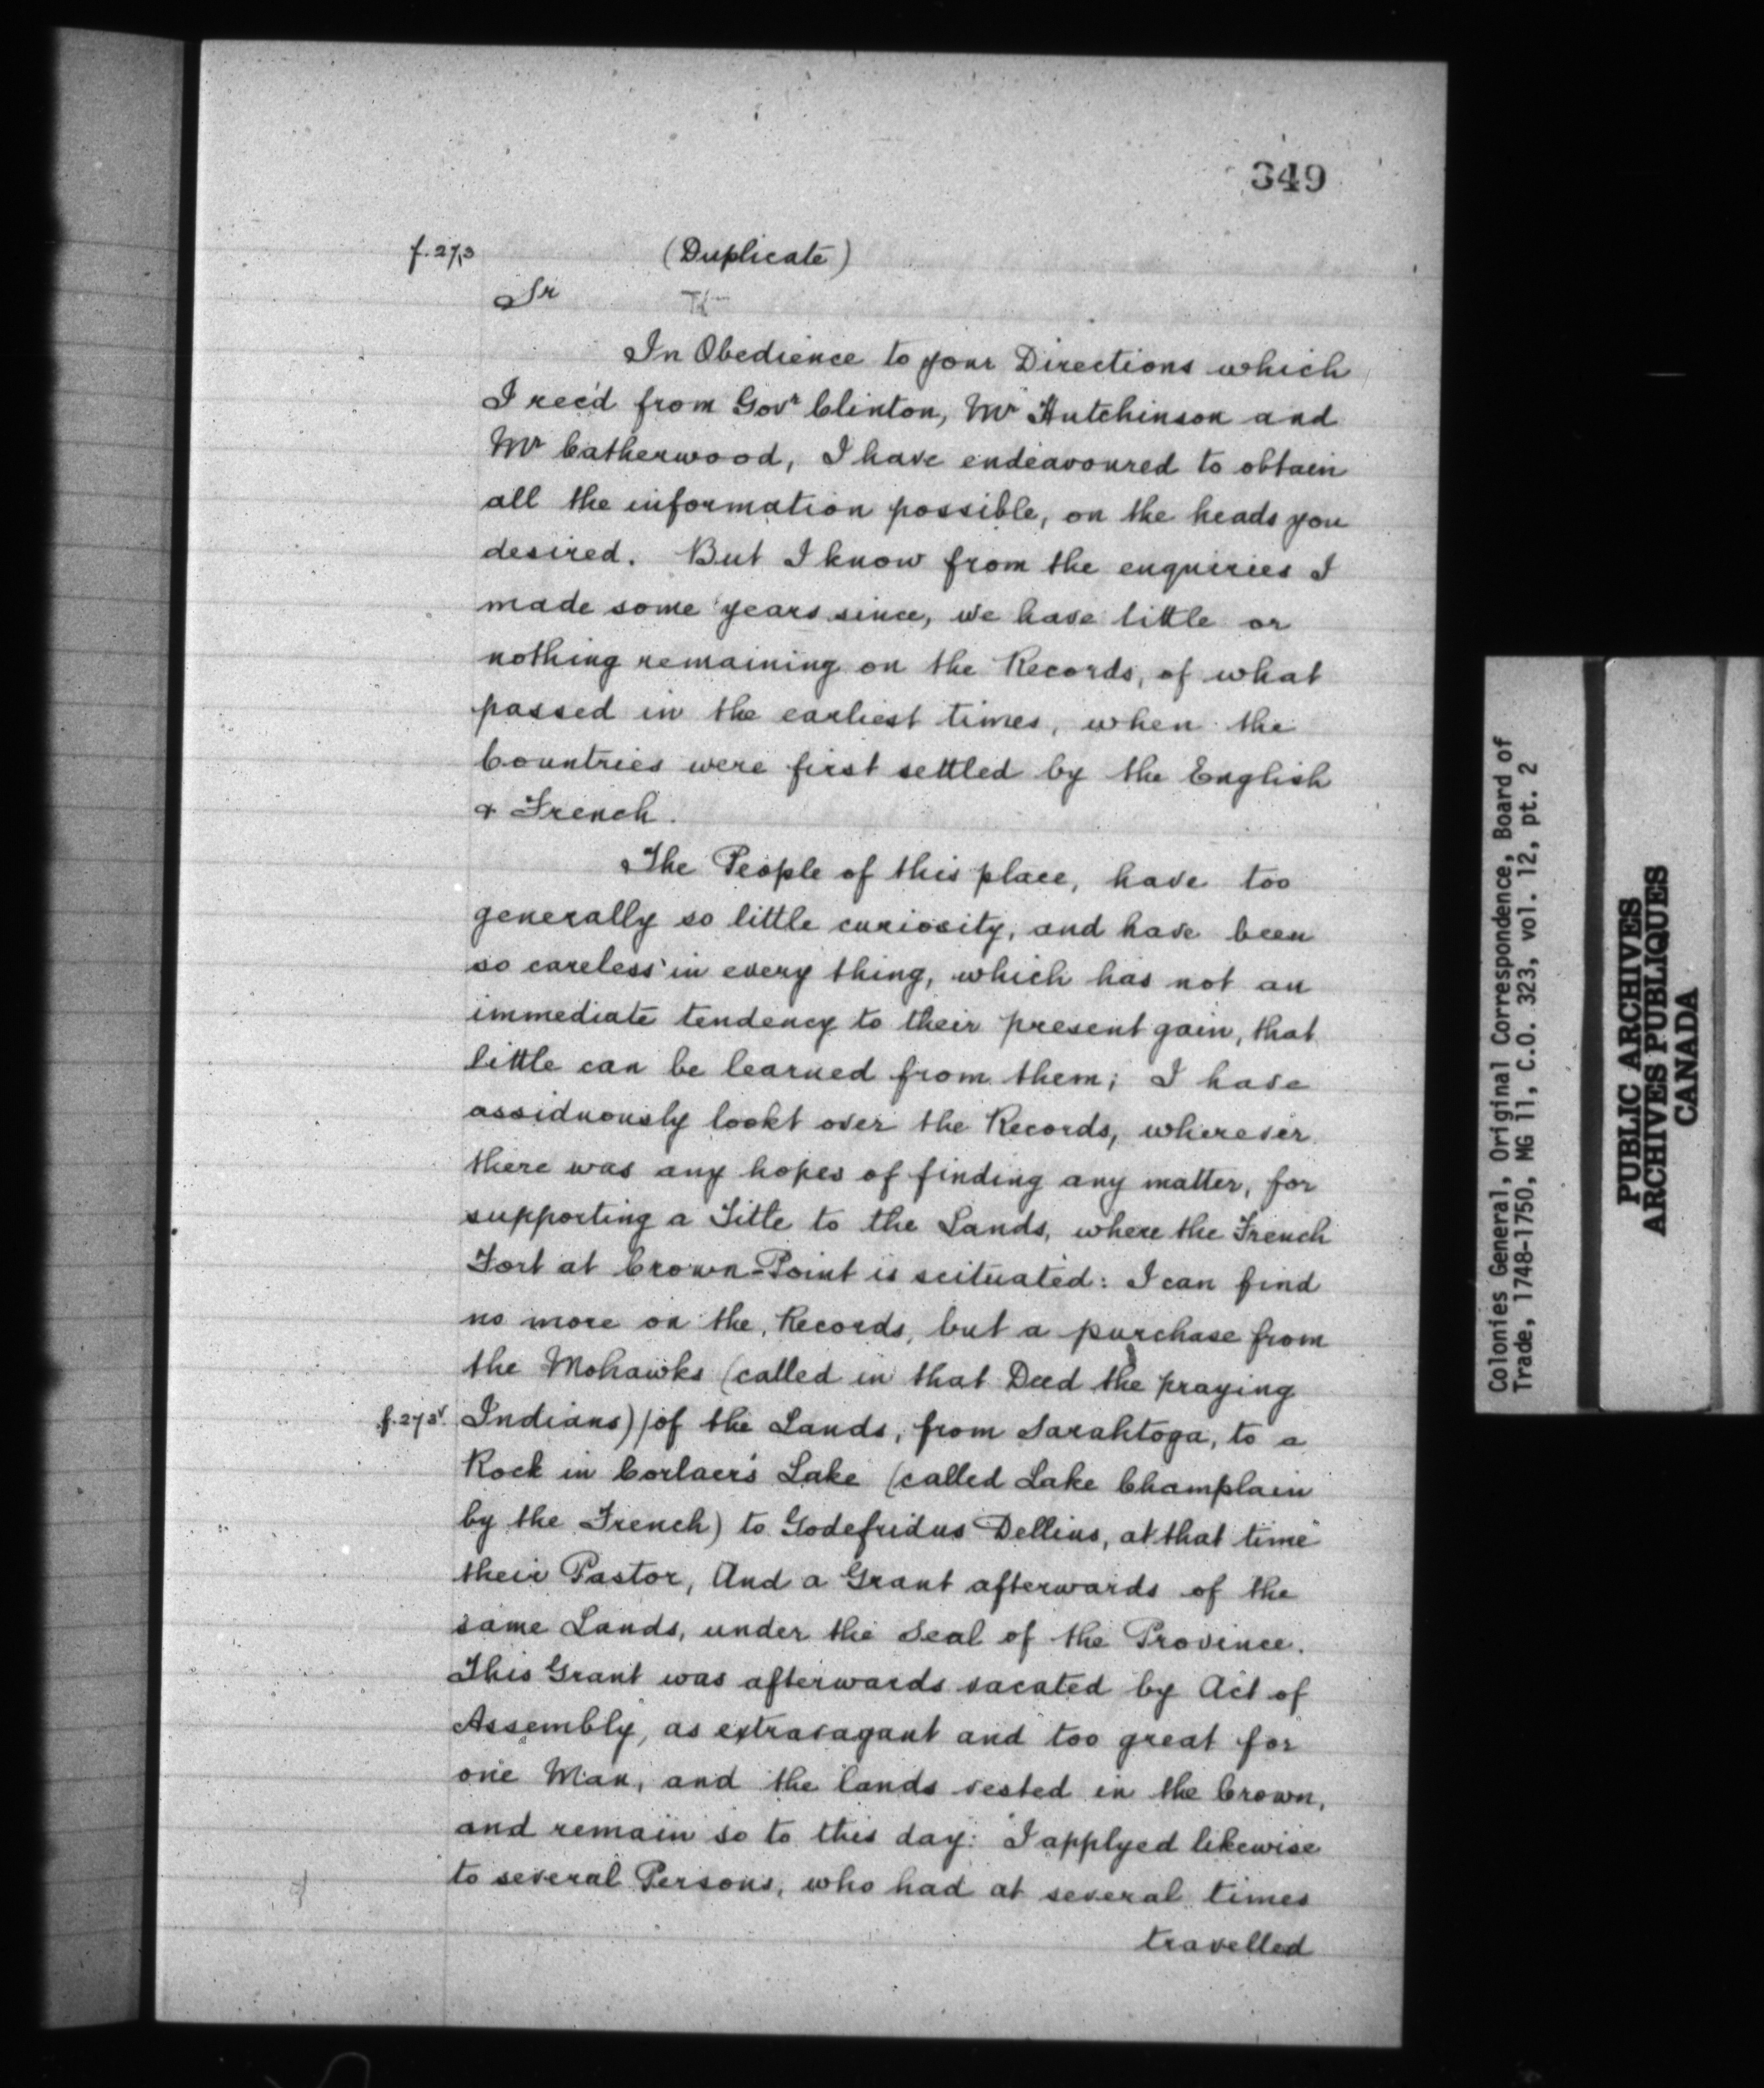 349
f. 273
(Duplicate)
Sr
In Obedience to your Directions which
I rec'd from Govr Clinton, Mr Hutchinson and
Mr Catherwood, I have endeavoured to obtain
all the information possible, on the heads you
desired. But I know from the enquiries I
made some years since, we have little or
nothing remaining on the Records, of what
passed in the earliest times, when the
Countries were first settled by the English
& French.
The People of this place, have too
generally so little curiosity, and have been
so careless in every thing, which has not an
immediate tendency to their present gain, that
little can be learned from them; I have
assiduously lookt over the Records, wherever
there was any hopes of finding any matter, for
supporting a Title to the Lands, where the French
Fort at Crown-Point is scituated: I can find
no more on the Records, but a purchase from
the Mohawks (called in that Deed the praying
f. 273v. Indians) / of the Lands, from Sarahtoga, to a
Rock in Corlaer's Lake (called Lake Champlain
by the French) to Godefridus Dellius, at that time
their Pastor, And a Grant afterwards of the
same Lands, under the Seal of the Province.
This Grant was afterwards vacated by Act of
Assembly, as extravagant and too great for
one Man, and the lands vested in the Crown,
and remain so to this day: I applyed likewise
to several Persons, who had at several times
travelled
Colonies General, Original Correspondence, Board of
Trade, 1748-1750, MG 11, C.O. 323, vol. 12, pt. 2
PUBLIC ARCHIVES
ARCHIVES PUBLIQUES
CANADA